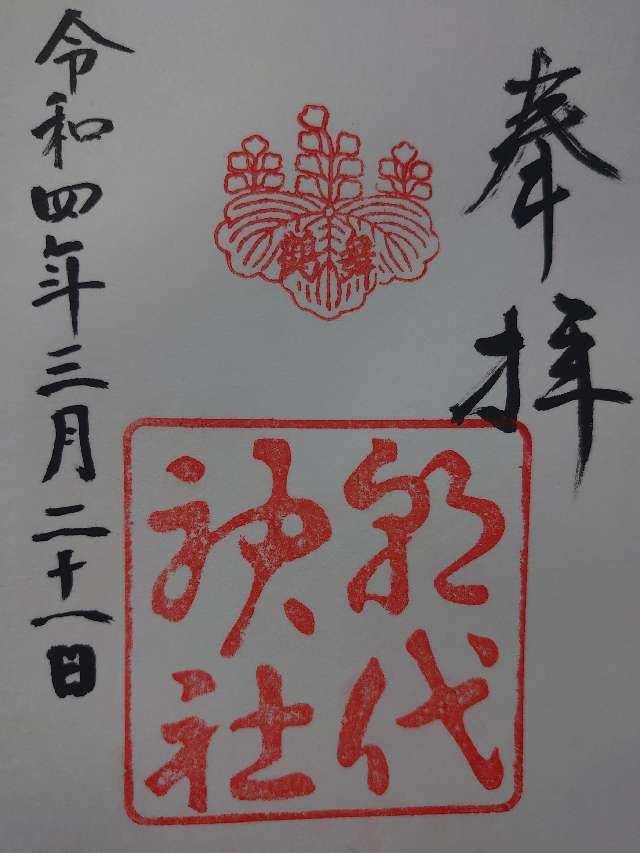 奉拝
舞鶴
朝代
神社
令和四年三月二十一日